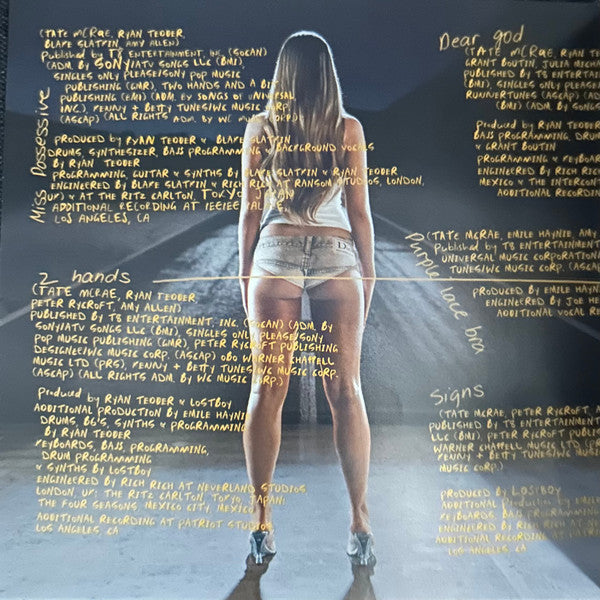 Miss Possessive
(TATE MCRAE, RYAN TEDDER,
BLAKE SLATKIN, AMY ALLEN)
Published by T8 ENTERTAINMENT, INC. (SOCAN)
(ADM. BY SONY/ATV SONGS LLC (BMI),
SINGLES ONLY PLEASE/SONY POP MUSIC
PUBLISHING (GMR), TWO HANDS AND A BIT
PUBLISHING (BMI) (ADM. BY SONGS OF UNIVERSAL
INC.), KENNY + BETTY TUNES/WC MUSIC CORP.
(ASCAP) (ALL RIGHTS ADM. BY WC MUSIC CORP.)
PRODUCED BY RYAN TEDDER + BLAKE SLATKIN
DRUMS, SYNTHESIZER, BASS PROGRAMMING + BACKGROUND VOCALS
BY RYAN TEDDER
PROGRAMMING, GUITAR + SYNTHS BY BLAKE SLATKIN + RYAN TEDDER
ENGINEERED BY BLAKE SLATKIN + RICH RICH AT RANSOM STUDIOS, LONDON,
(UK) + AT THE RITZ CARLTON, TOKYO, JAPAN
ADDITIONAL RECORDING AT
LOS ANGELES, CA
2 hands
(TATE MCRAE, RYAN TEDDER
PETER RYCROFT, AMY ALLEN)
PUBLISHED BY T8 ENTERTAINMENT, INC. (SOCAN) (ADM. BY
SONY/ATV SONGS LLC (BMI), SINGLES ONLY PLEASE/SONY
POP MUSIC PUBLISHING (GMR), PETER RYCROFT PUBLISHING
DESIGNEE/WC MUSIC CORP. (ASCAP) OBO WARNER CHAPPELL
MUSIC LTD (PRS), KENNY + BETTY TUNES/WC MUSIC CORP.
(ASCAP) (ALL RIGHTS ADM. BY WC MUSIC CORP.)
Produced by RYAN TEDDER + LOSTBOY
ADDITIONAL PRODUCTION BY EMILE HAYNIE
DRUMS, BG'S, SYNTHS + PROGRAMMING
BY RYAN TEDDER
KEYBOARDS, BASS, PROGRAMMING,
DRUM PROGRAMMING
+ SYNTHS BY LOSTBOY
ENGINEERED BY RICH RICH AT NEVERLAND STUDIOS
LONDON, UK; THE RITZ CARLTON, TOKYO, JAPAN;
THE FOUR SEASONS, MEXICO CITY, MEXICO
ADDITIONAL RECORDING AT PATRIOT STUDIOS
LOS ANGELES, CA
Dear god
(TATE MCRAE, RYAN TE
GRANT BOUTIN, JULIA MICHA
PUBLISHED BY T8 ENTERTAINM
(BMI), SINGLES ONLY PLEASE
RUNAWAY TUNES (ASCAP) (AD
(BMI) (ADM. BY SONGS
Produced by RYAN TEDDER
BASS PROGRAMMING, DRUM
+ GRANT BOUTIN
PROGRAMMING + KEYBOAR
ENGINEERED BY RICH RICH
MEXICO + THE INTERCONT
ADDITIONAL RECORDIN
Purple lace bra
(TATE MCRAE, EMILE HAYNIE, AMY
Published by T8 ENTERTAINMENT
UNIVERSAL MUSIC CORPORATION
TUNES/WC MUSIC CORP. (ASCAP
PRODUCED BY EMILE HAYN
ENGINEERED BY JOE HE
ADDITIONAL VOCAL RE
Signs
(TATE MCRAE, PETER RYCROFT, A
PUBLISHED BY T8 ENTERTAINMENT
LLC (BMI), PETER RYCROFT PUBLIS
WARNER CHAPPELL MUSIC LTD (PR
KENNY + BETTY TUNES/WC MUSI
MUSIC CORP.)
PRODUCED BY LOSTBOY
ADDITIONAL Production by EMILE
KEYBOARDS, BASS PROGRAMMING
ENGINEERED BY RICH RICH AT NE
ADDITIONAL RECORDING AT PATRIO
LOS ANGELES, CA